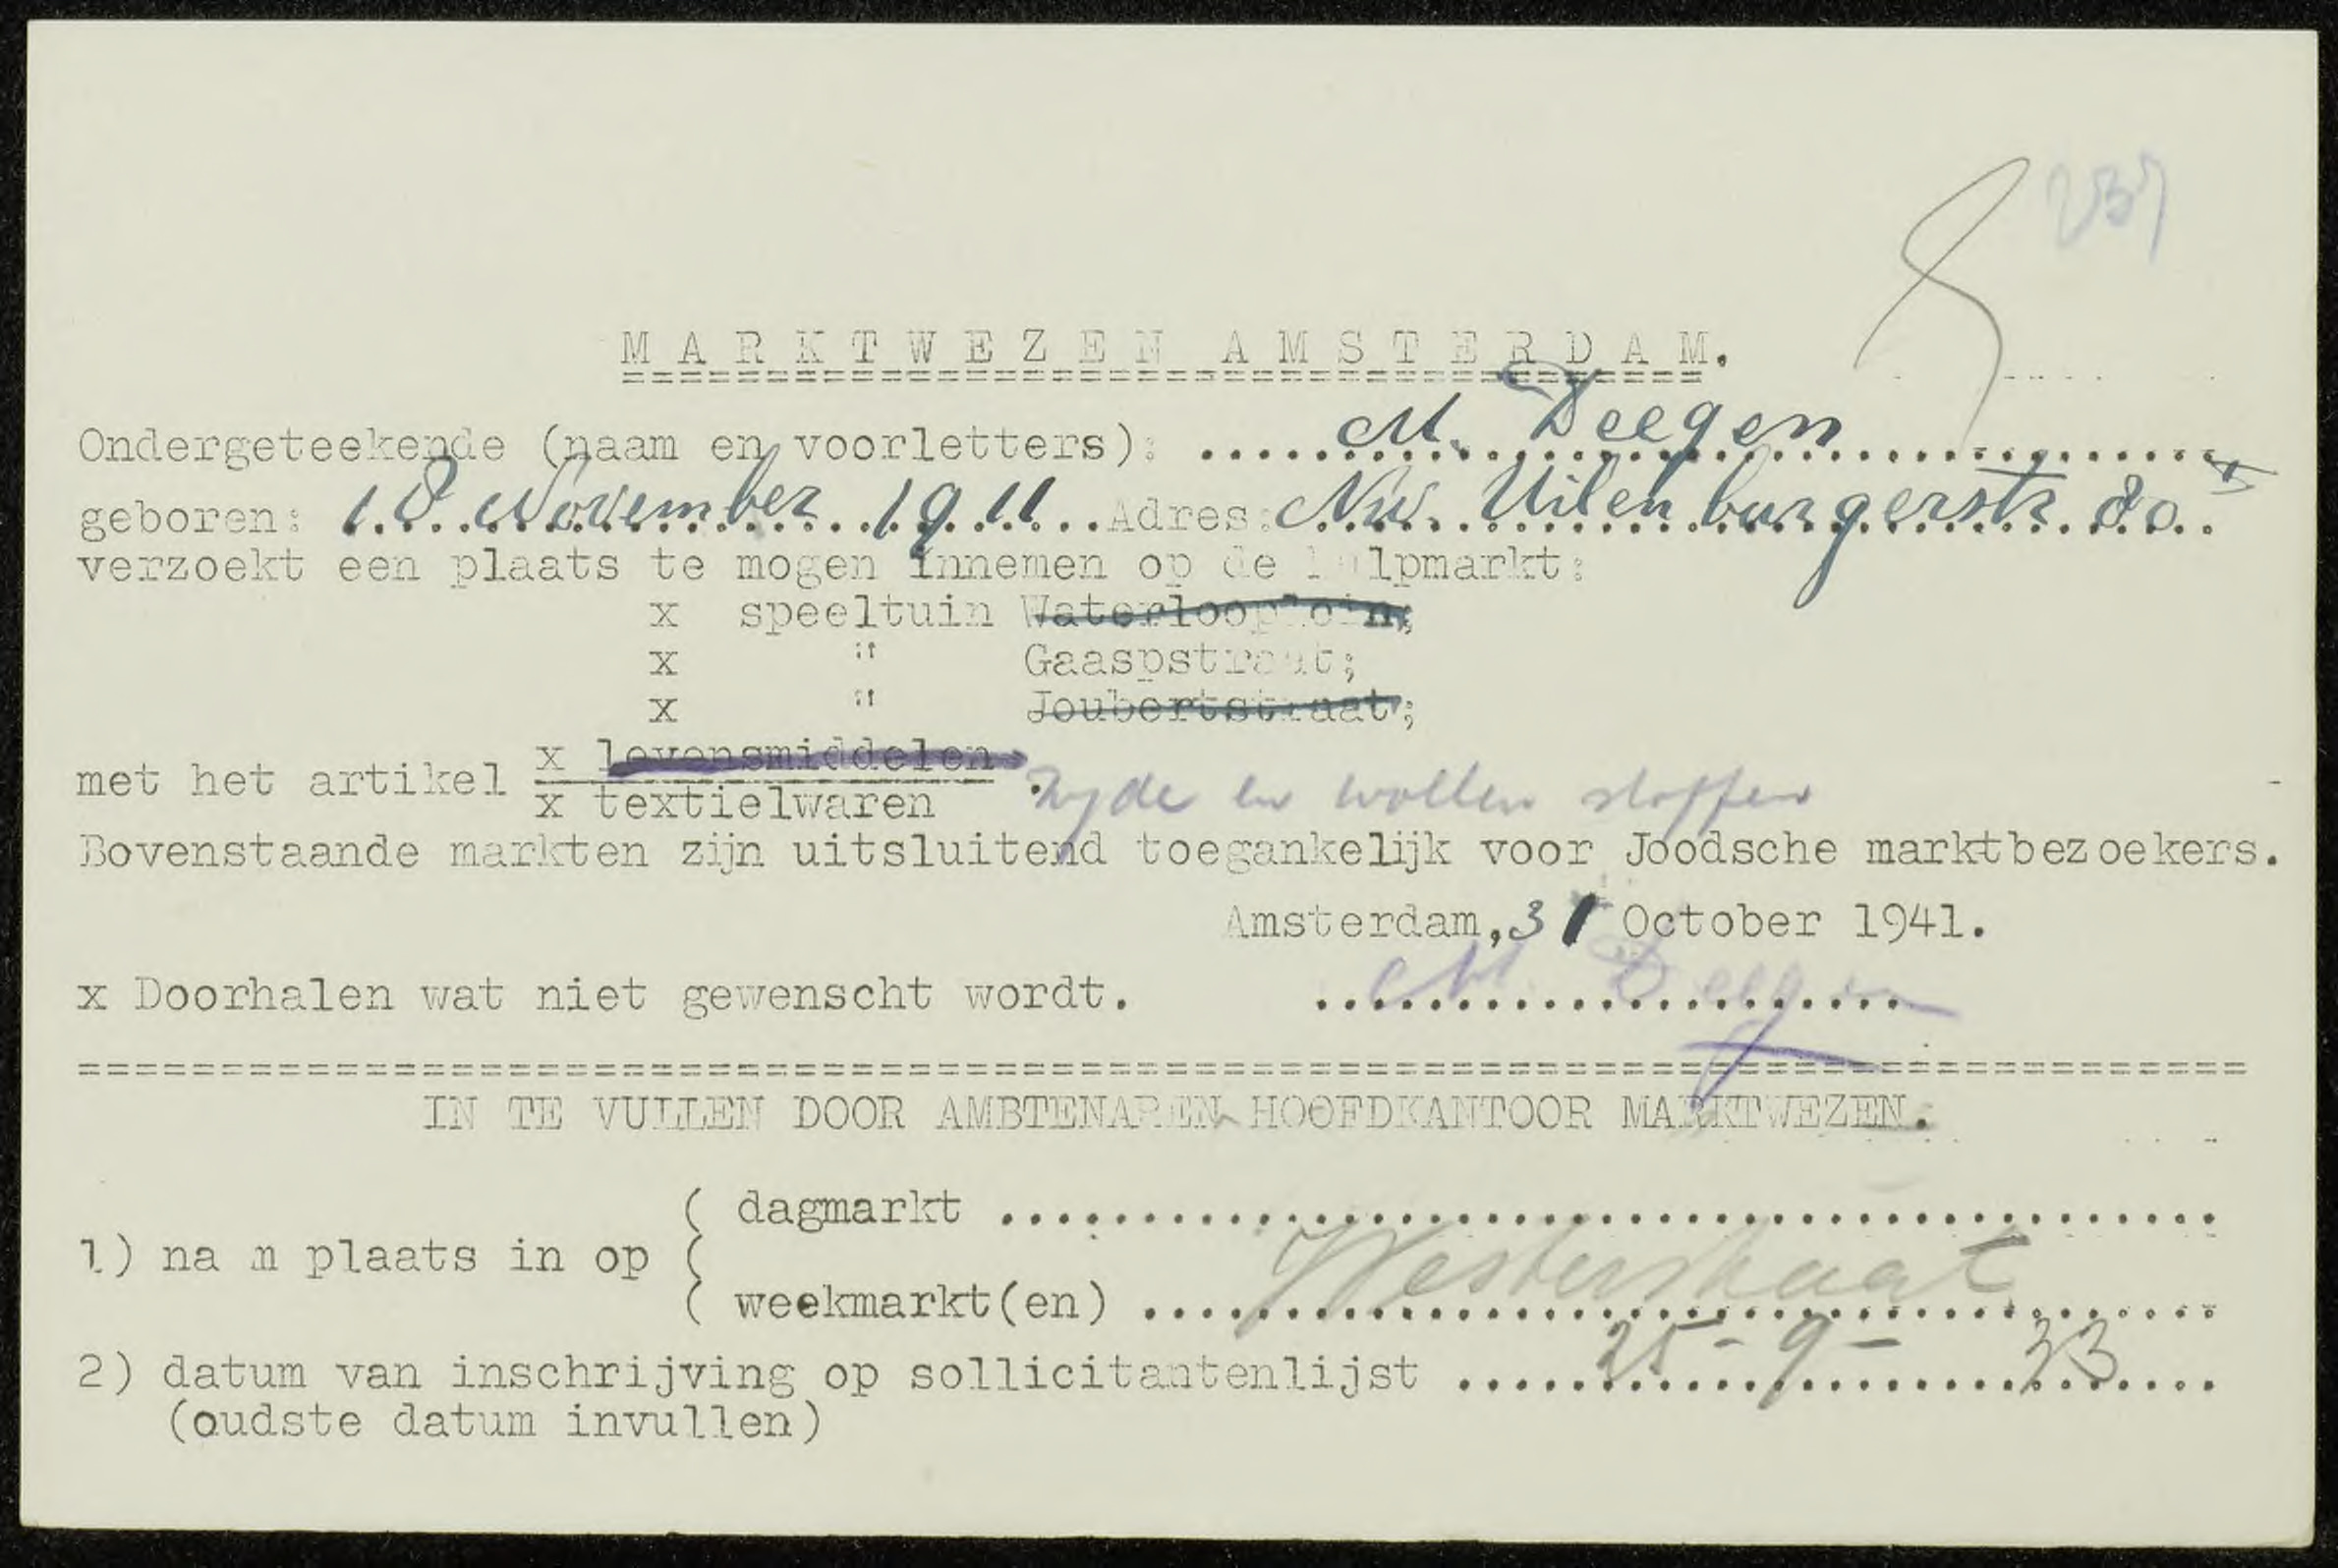 M A R K T W E Z E N  A M S T E R D A M.
Ondergeteekende (naam en voorletters): M. Deegen
geboren: 18 November 1911 Adres: Nw. Uilenburgerstr. 80 II
verzoekt een plaats te mogen innemen op de hulpmarkt:
x speeltuin Waterlooplein;
x " Gaaspstraat;
x " Joubertstraat;
met het artikel x levensmiddelen
x textielwaren . zyde en wollen stoffen
Bovenstaande markten zijn uitsluitend toegankelijk voor Joodsche marktbezoekers.
Amsterdam, 31 October 1941.
x Doorhalen wat niet gewenscht wordt. M. Deegen
IN TE VULLEN DOOR AMBTENAREN HOOFDKANTOOR MARKTWEZEN.
( dagmarkt
1) na m plaats in op (
( weekmarkt(en) Westerstraat
2) datum van inschrijving op sollicitantenlijst 25-9-33
(oudste datum invullen)